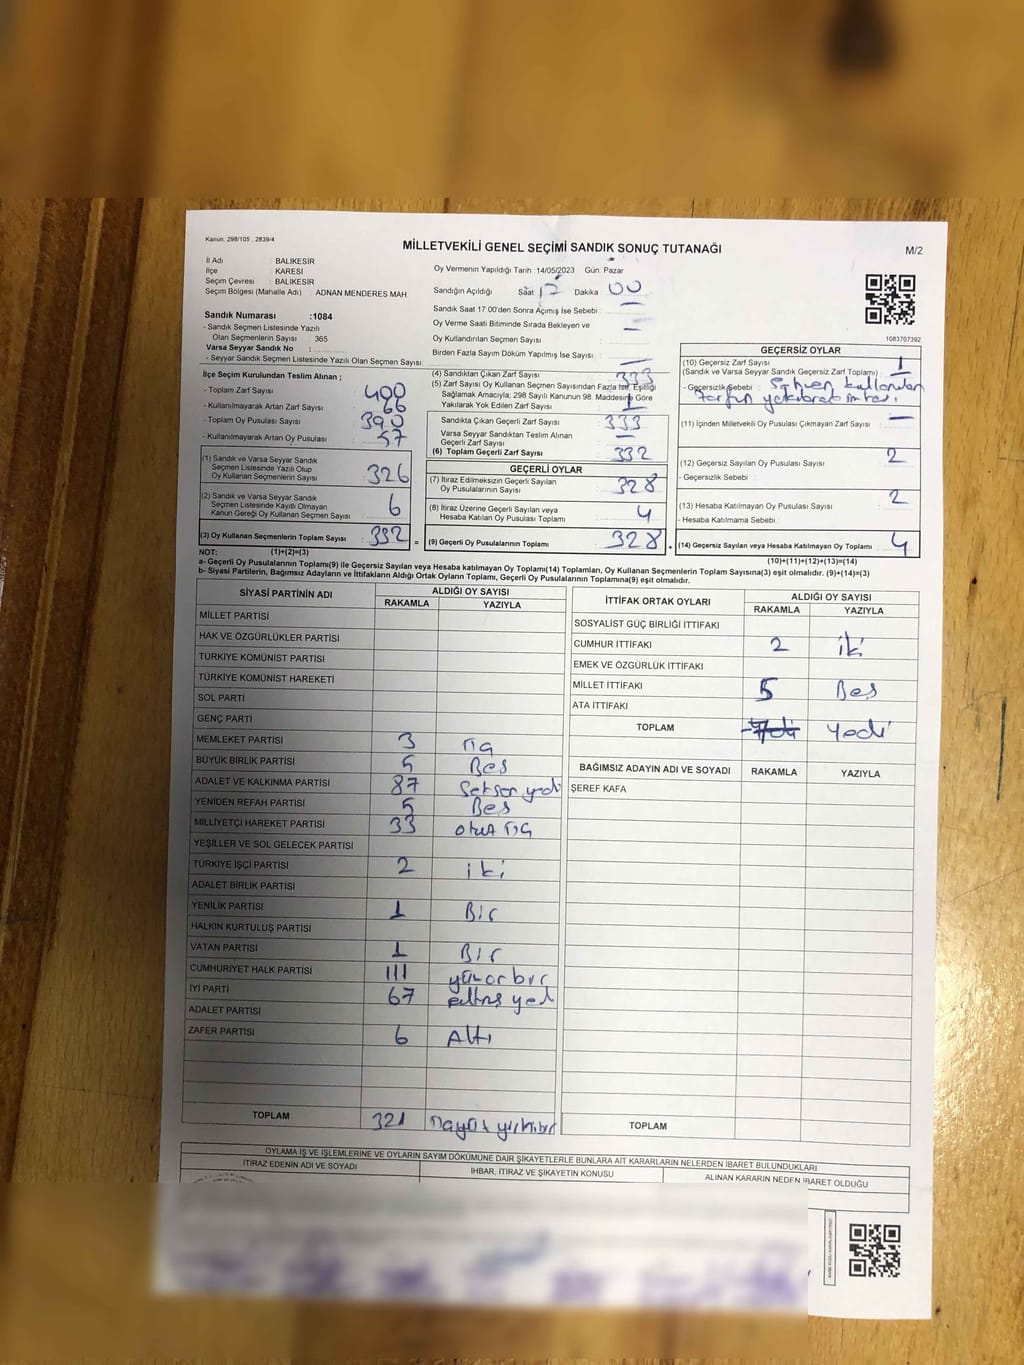 Kanun: 298/105 , 2839/4
MİLLETVEKİLİ GENEL SEÇİMİ SANDIK SONUÇ TUTANAĞI
M/2
İl Adı : BALIKESİR
İlçe : KARESİ
Seçim Çevresi : BALIKESİR
Seçim Bölgesi (Mahalle Adı) : ADNAN MENDERES MAH
Sandık Numarası :1084
- Sandık Seçmen Listesinde Yazılı
Olan Seçmenlerin Sayısı : 365
Varsa Seyyar Sandık No :
- Seyyar Sandık Seçmen Listesinde Yazılı Olan Seçmen Sayısı:
Oy Vermenin Yapıldığı Tarih :14/05/2023 Gün: Pazar
Sandığın Açıldığı Saat 17 Dakika 00
Sandık Saat 17:00'den Sonra Açımış İse Sebebi : —
Oy Verme Saati Bitiminde Sırada Bekleyen ve
Oy Kullandırılan Seçmen Sayısı : —
Birden Fazla Sayım Döküm Yapılmış İse Sayısı : —
1083707392
İlçe Seçim Kurulundan Teslim Alınan ;
- Toplam Zarf Sayısı : 400
- Kullanılmayarak Artan Zarf Sayısı : 66
- Toplam Oy Pusulası Sayısı : 390
- Kullanılmayarak Artan Oy Pusulası : 57
(1) Sandık ve Varsa Seyyar Sandık
Seçmen Listesinde Yazılı Olup
Oy Kullanan Seçmenlerin Sayısı : 326
(2) Sandık ve Varsa Seyyar Sandık
Seçmen Listesinde Kayıtlı Olmayan
Kanun Gereği Oy Kullanan Seçmen Sayısı : 6
(3) Oy Kullanan Seçmenlerin Toplam Sayısı : 332
(4) Sandıktan Çıkan Zarf Sayısı : 333
(5) Zarf Sayısı Oy Kullanan Seçmen Sayısından Fazla İse, Eşitliği
Sağlamak Amacıyla; 298 Sayılı Kanunun 98. Maddesine Göre
Yakılarak Yok Edilen Zarf Sayısı : 1
Sandıkta Çıkan Geçerli Zarf Sayısı : 333
Varsa Seyyar Sandıktan Teslim Alınan
Geçerli Zarf Sayısı : —
(6) Toplam Geçerli Zarf Sayısı : 332
GEÇERLİ OYLAR
(7) İtiraz Edilmeksizin Geçerli Sayılan
Oy Pusulalarının Sayısı : 328
(8) İtiraz Üzerine Geçerli Sayılan veya
Hesaba Katılan Oy Pusulası Toplamı : 4
= (9) Geçerli Oy Pusulalarının Toplamı : 328
GEÇERSİZ OYLAR
(10) Geçersiz Zarf Sayısı : 1
(Sandık ve Varsa Seyyar Sandık Geçersiz Zarf Toplamı)
- Geçersizlik Sebebi : Sehven kullanılan
zarfın
(11) İçinden Milletvekili Oy Pusulası Çıkmayan Zarf Sayısı : —
(12) Geçersiz Sayılan Oy Pusulası Sayısı : 2
- Geçersizlik Sebebi :
(13) Hesaba Katılmayan Oy Pusulası Sayısı : 2
- Hesaba Katılmama Sebebi :
(14) Geçersiz Sayılan veya Hesaba Katılmayan Oy Toplamı : 4
NOT: (1)+(2)=(3)
(10)+(11)+(12)+(13)=(14)
a- Geçerli Oy Pusulalarının Toplamı(9) ile Geçersiz Sayılan veya Hesaba katılmayan Oy Toplamı(14) Toplamları, Oy Kullanan Seçmenlerin Toplam Sayısına(3) eşit olmalıdır. (9)+(14)=(3)
b- Siyasi Partilerin, Bağımsız Adayların ve İttifakların Aldığı Ortak Oyların Toplamı, Geçerli Oy Pusulalarının Toplamına(9) eşit olmalıdır.
SİYASİ PARTİNİN ADI
ALDIĞI OY SAYISI
RAKAMLA YAZIYLA
MİLLET PARTİSİ
HAK VE ÖZGÜRLÜKLER PARTİSİ
TÜRKİYE KOMÜNİST PARTİSİ
TÜRKİYE KOMÜNİST HAREKETİ
SOL PARTİ
GENÇ PARTİ
MEMLEKET PARTİSİ 3 Üç
BÜYÜK BİRLİK PARTİSİ 5 Beş
ADALET VE KALKINMA PARTİSİ 87 Seksen yedi
YENİDEN REFAH PARTİSİ 5 Beş
MİLLİYETÇİ HAREKET PARTİSİ 33 otuz üç
YEŞİLLER VE SOL GELECEK PARTİSİ
TÜRKİYE İŞÇİ PARTİSİ 2 iki
ADALET BİRLİK PARTİSİ
YENİLİK PARTİSİ 1 Bir
HALKIN KURTULUŞ PARTİSİ
VATAN PARTİSİ 1 Bir
CUMHURİYET HALK PARTİSİ 111 yüz on bir
İYİ PARTİ 67 altmış yedi
ADALET PARTİSİ
ZAFER PARTİSİ 6 Altı
TOPLAM 321 üçyüz yirmibir
İTTİFAK ORTAK OYLARI
ALDIĞI OY SAYISI
RAKAMLA YAZIYLA
SOSYALİST GÜÇ BİRLİĞİ İTTİFAKI
CUMHUR İTTİFAKI 2 iki
EMEK VE ÖZGÜRLÜK İTTİFAKI
MİLLET İTTİFAKI 5 Beş
ATA İTTİFAKI
TOPLAM Yedi
BAĞIMSIZ ADAYIN ADI VE SOYADI RAKAMLA YAZIYLA
ŞEREF KAFA
TOPLAM
OYLAMA İŞ VE İŞLEMLERİNE VE OYLARIN SAYIM DÖKÜMÜNE DAİR ŞİKAYETLERLE BUNLARA AİT KARARLARIN NELERDEN İBARET BULUNDUKLARI
İTİRAZ EDENİN ADI VE SOYADI
İHBAR, İTİRAZ VE ŞİKAYETİN KONUSU
ALINAN KARARIN NEDEN İBARET OLDUĞU